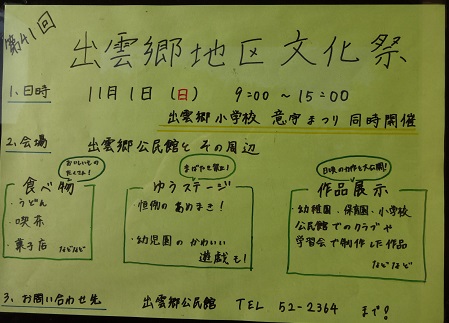 第41回
出雲郷地区文化祭
1、日時 11月1日(日) 9:00～15:00
出雲郷小学校 意宇まつり 同時開催
2、会場 出雲郷公民館とその周辺
おいしいもの
たくさん!
食べ物
・うどん
・喫茶
・菓子店
などなど
まばたき禁止!
ゆうステージ
恒例のあめまき!
・幼児園のかわいい
遊戯も!
日頃の力作を大公開!
作品展示
・幼稚園、保育園、小学校
公民館でのクラブや
学習会で制作した作品
などなど
3、お問い合わせ先 出雲郷公民館 TEL 52-2364 まで!